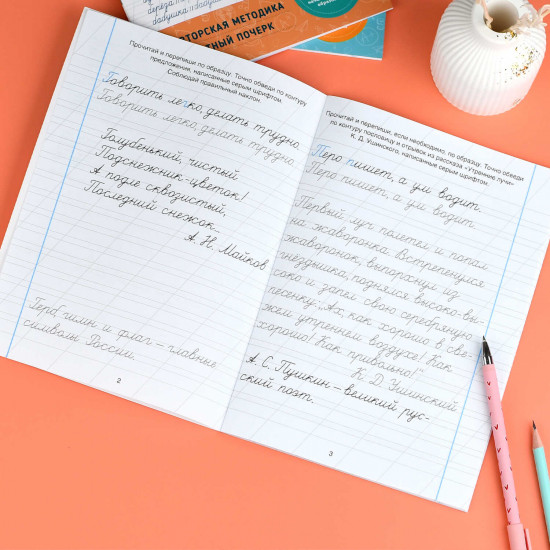 дереза п
бабушка п бабуш
АВТОРСКАЯ МЕТОДИКА
ТНЫЙ ПОЧЕРК
Прочитай и перепиши по образцу. Точно обведи по контуру
предложения, написанные серым шрифтом.
Соблюдай правильный наклон.
Говорить легко, делать трудно
Говорить легко, делать трудно
Голубенький, чистый
Подснежник-цветок!
А подле сквозистый,
Последний снежок...
А. Н. Майков
Герб, гимн и флаг – главные
символы России.
2
Прочитай и перепиши, если необходимо, по образцу. Точно обведи
по контуру пословицу и отрывок из рассказа «Утренние лучи»
К. Д. Ушинского, написанные серым шрифтом.
Перо пишет, а ум водит.
Перо пишет, а ум водит.
Первый луч полетел и попал
на жаворонка. Встрепенулся
жаворонок, выпорхнул из
гнёздышка, поднялся высоко-вы-
соко и запел свою серебряную
песенку: „Ах, как хорошо в све-
жем утреннем воздухе! Как
хорошо! Как привольно!“
К. Д. Ушинский
А. С. Пушкин – великий рус-
ский поэт.
3